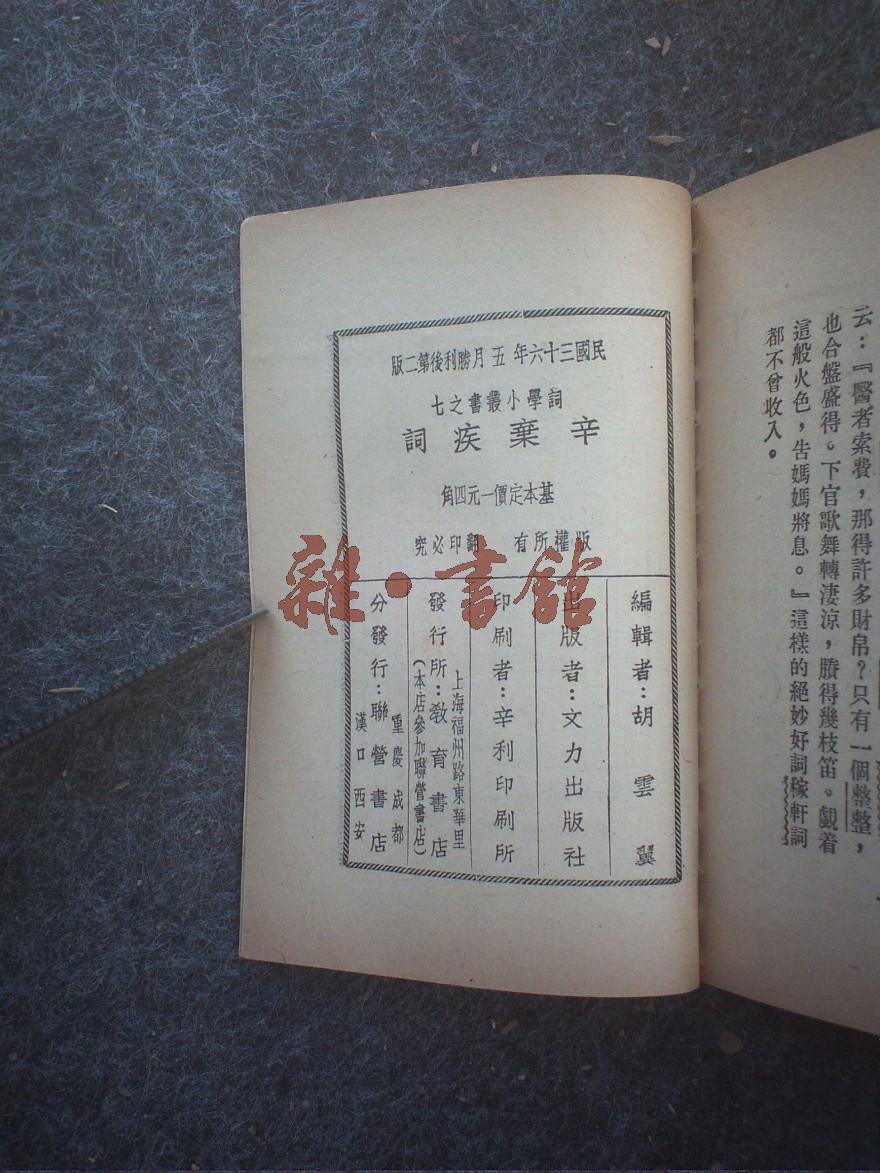 云：『醫者索費，那得許多財帛？只有一個整整，
也合盤盛得。下官歌舞轉淒涼，賸得幾枝笛。覷着
這般火色，告媽媽將息。』這樣的絕妙好詞稼軒詞
都不曾收入。
民國三十六年五月勝利後第二版
詞學小叢書之七
辛棄疾詞
基本定價一元四角
版權所有 翻印必究
編輯者：胡雲翼
出版者：文力出版社
印刷者：辛利印刷所
上海福州路東華里
發行所：教育書店
（本店參加聯營書店）
重慶成都
分發行：聯營書店
漢口西安
雜·書館